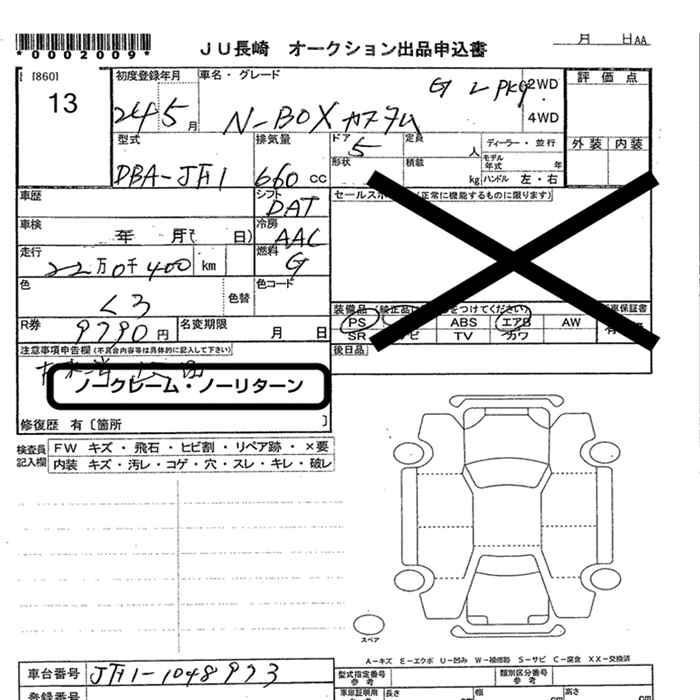 *0002009*
JU長崎 オークション出品申込書
月 日 AA
[860]
13
初度登録年月
24 5 月
車名・グレード
G L PKG
N-BOXカスタム
2WD
4WD
評価点
外装 内装
型式
DBA-JF1
排気量
660 cc
ドア
5
定員
人
ディーラー・並行
モデル年式 年
形状
積載
kg
ハンドル 左・右
車歴
シフト
DAT
車検
年 月( 日)
冷房
AAC
走行
22万0千400 km
燃料
G
色
クロ
色替
色コード
R券
9790 円
名変期限
月 日
(正常に機能するものに限ります)
PS
ABS
エアB
AW
SR
TV
カワ
後日品
注意事項申告欄 (不具合内容等は具体的に記入して下さい)
ノークレーム・ノーリターン
修復歴 有〔箇所 〕
検査員記入欄
FW キズ・飛石・ヒビ割・リペア跡・×要
内装 キズ・汚レ・コゲ・穴・スレ・キレ・破レ
スペア
A-キズ E-エクボ U-凹み W-補修跡 S-サビ C-腐食 XX-交換済
車台番号
JF1-1048973
型式指定番号
参考
類別区分番号
参考
登録番号
車庫証明用
参考
長さ
幅
高さ